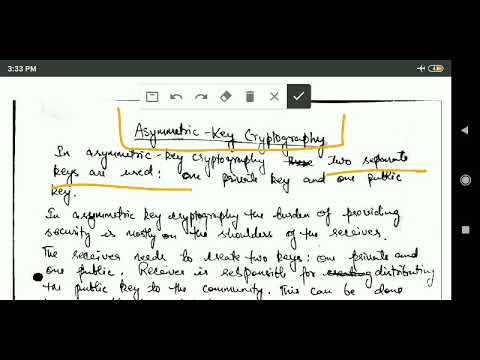 3:33 PM
Asymmetric-Key Cryptography
In asymmetric-key cryptography two separate
keys are used: one private key and one public
key.
In assymetric key cryptography the burden of providing
security is mostly on the shoulders of the receiver.
The receiver needs to create two keys: one private and
one public. Receiver is responsible for distributing
the public key to the community. This can be done